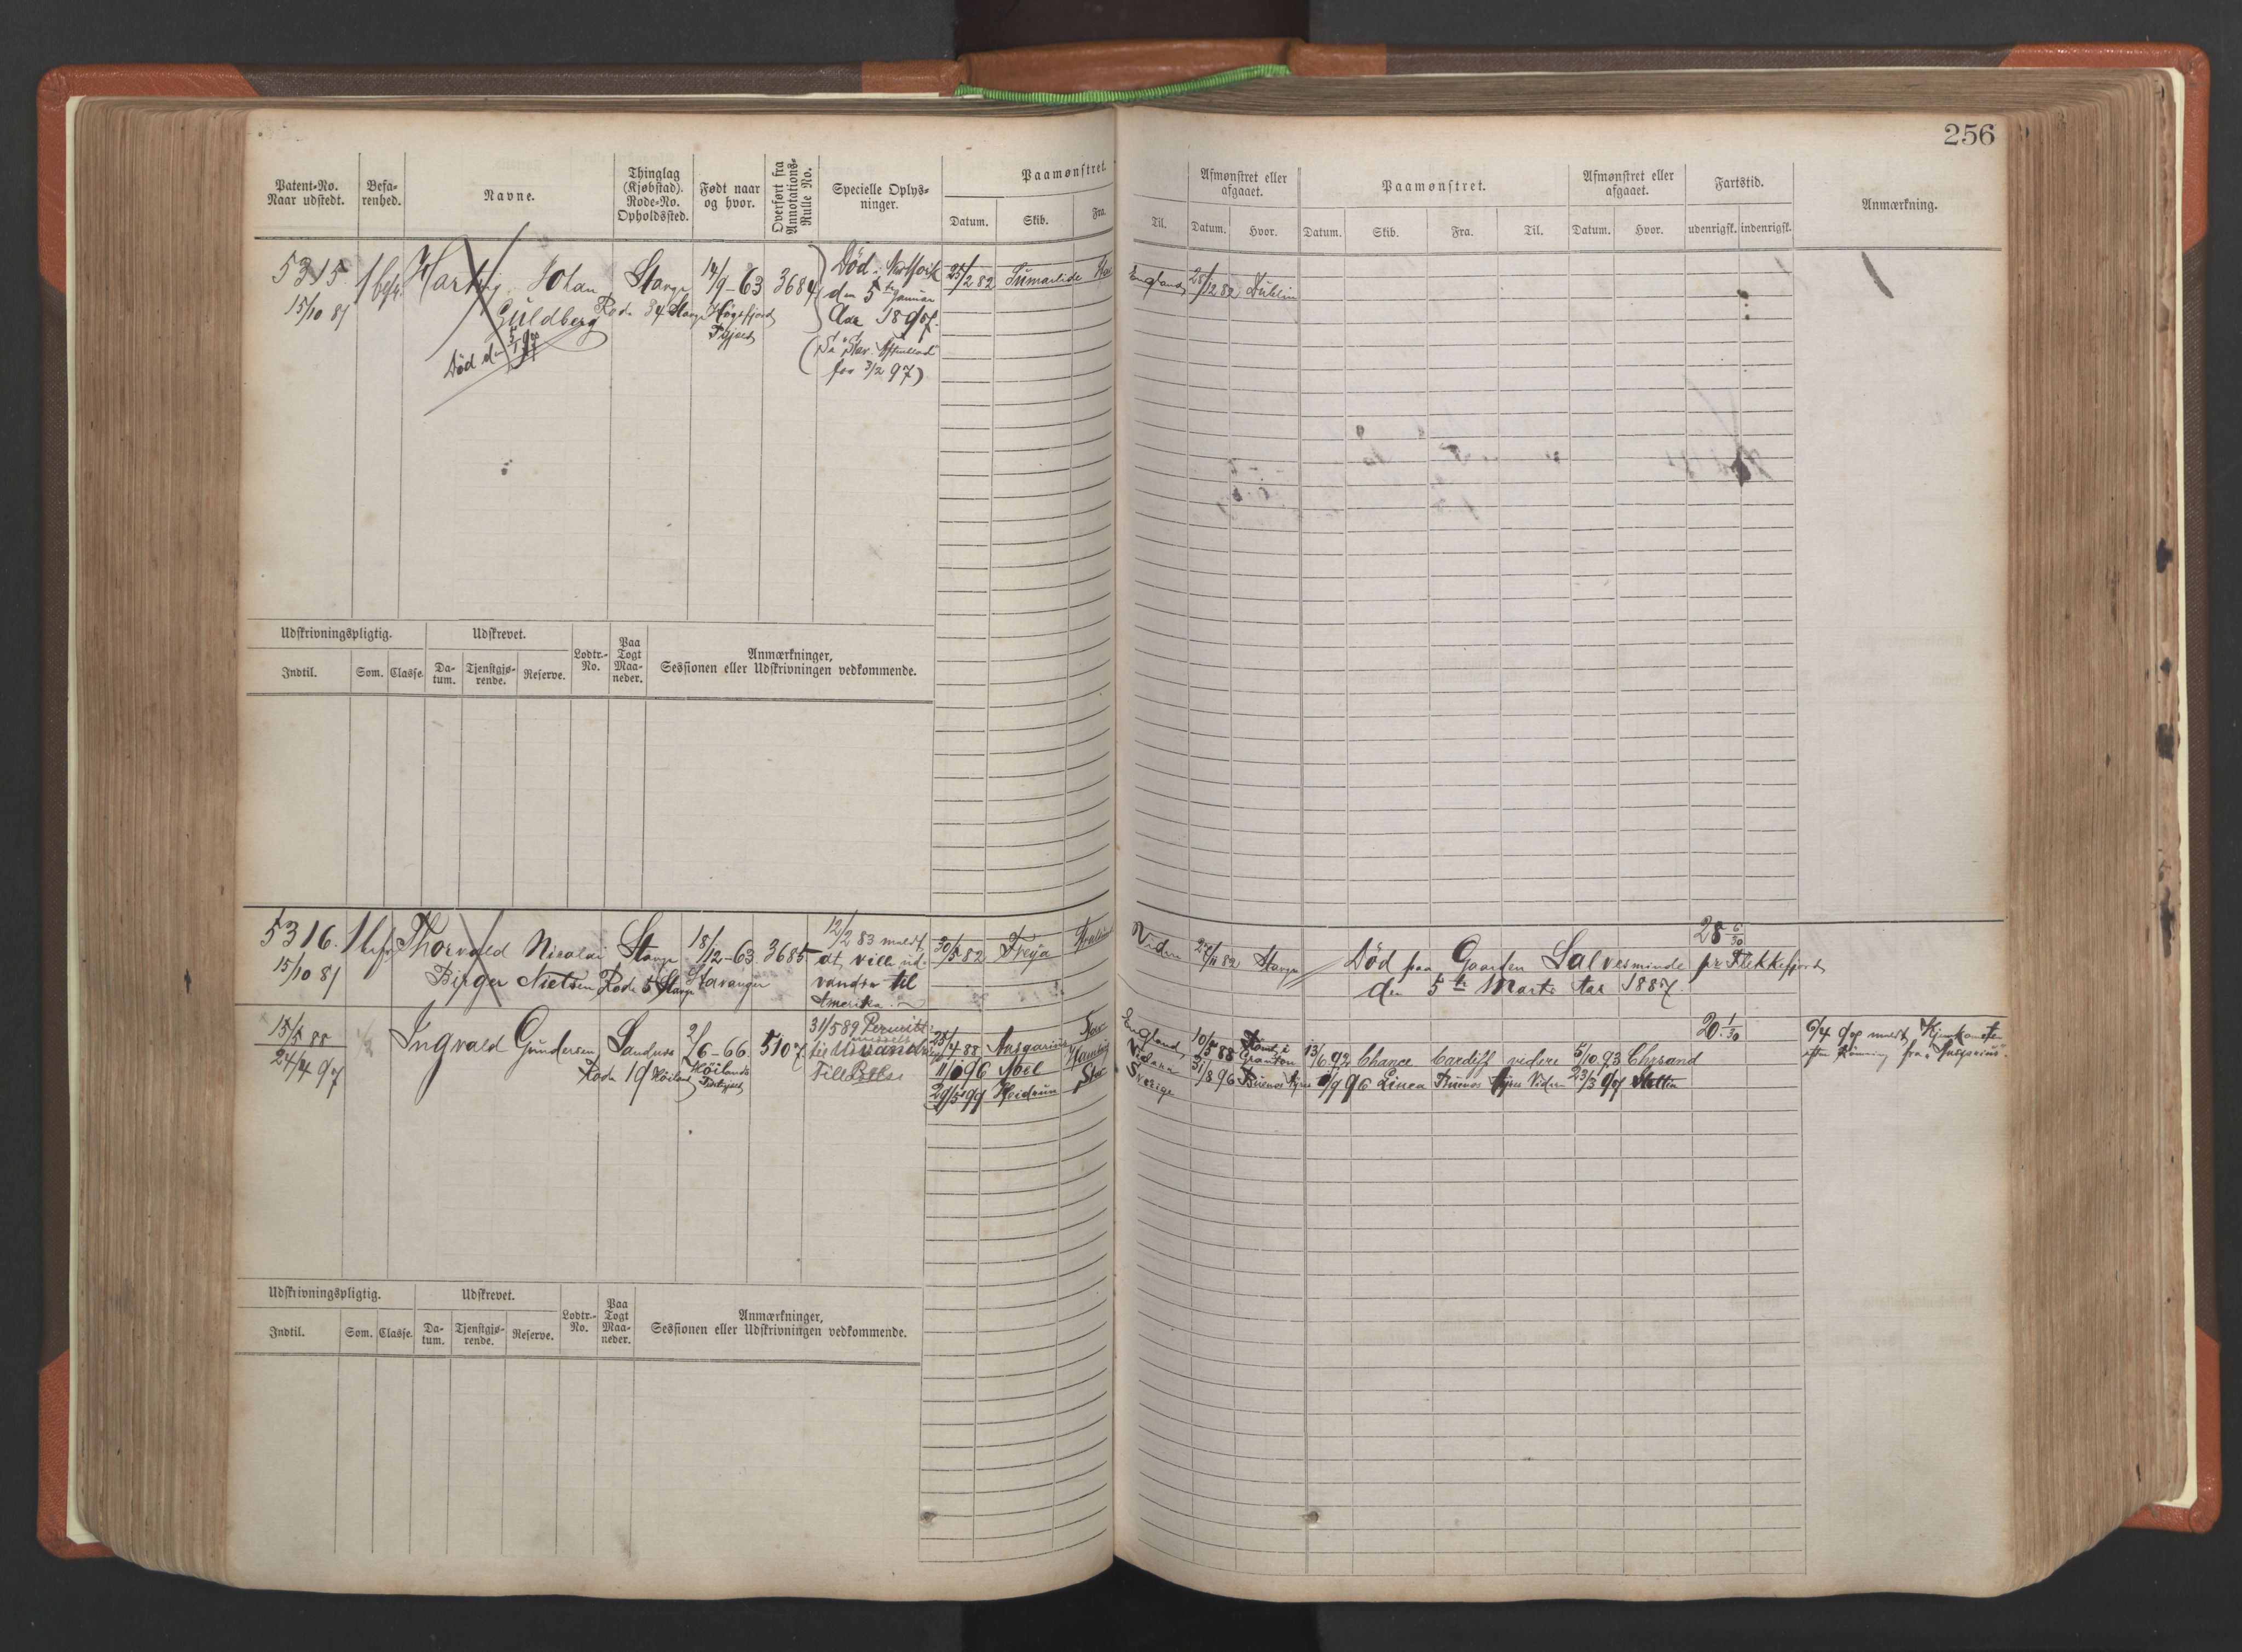 256
Patent-No. Naar udstedt.
Befarenhed.
Navne.
Thinglag (Kjøbstad). Rode-No. Opholdssted.
Født naar og hvor.
Overført fra Annotations-Rulle No.
Specielle Oplysninger.
Paamønstret.
Datum. Skib. Fra. Til.
Afmønstret eller afgaaet.
Datum. Hvor.
Paamønstret.
Datum. Skib. Fra. Til.
Afmønstret eller afgaaet.
Datum. Hvor.
Fartstid.
udenrigsk. indenrigsk.
Anmærkning.
5315 Johan Stavgr 14/9-63 3684 Død
15/10 81 Guldberg Rode 34 Stavgr Høgsfjord
Død d. 5/1 97
den 5te Januar
Aar 1897.
for 3/2 97)
25/2 82 England 28/12 82 Dublin
Udskrivningspligtig.
Indtil. Som. Classe.
Udskrevet.
Datum. Tjenstgjørende. Reserve.
Lodtr.-No.
Paa Togt Maaneder.
Anmærkninger, Sessionen eller Udskrivningen vedkommende.
5316 Thorvald Nicolai Stavgr 18/12-63 3685
15/10 81 Birger Nielsen Rode 5 Stavgr Stavanger
12/2 83 meldt
at ville ud-
vandre til
Amerika.
30/5 82 Freya Viden 82 Stavgr
Død paa Gaarden Salvesminde pr Flekkefjord
den 5te Marts Aar 1887.
28 6/30
15/5 88 Ingvald Gundersen Sandnes 2/6-66 5107
24/4 97 Rode 19 Høiland Høilands
31/5 89 Permitt.
25/4 88 Ansgarius England, 10/5 88 Granton
13/6 92 Chance Cardiff videre 5/10 93 Chrsand
96 Abel Videre 31/8 96 Buenos Ayres
96 Linea Buenos Ayres Viden 23/3 97 Stettin
29/5 99 Heidrun Sverige
20 1/30
6/4 97 meldt
Udskrivningspligtig.
Indtil. Som. Classe.
Udskrevet.
Datum. Tjenstgjørende. Reserve.
Lodtr.-No.
Paa Togt Maaneder.
Anmærkninger, Sessionen eller Udskrivningen vedkommende.